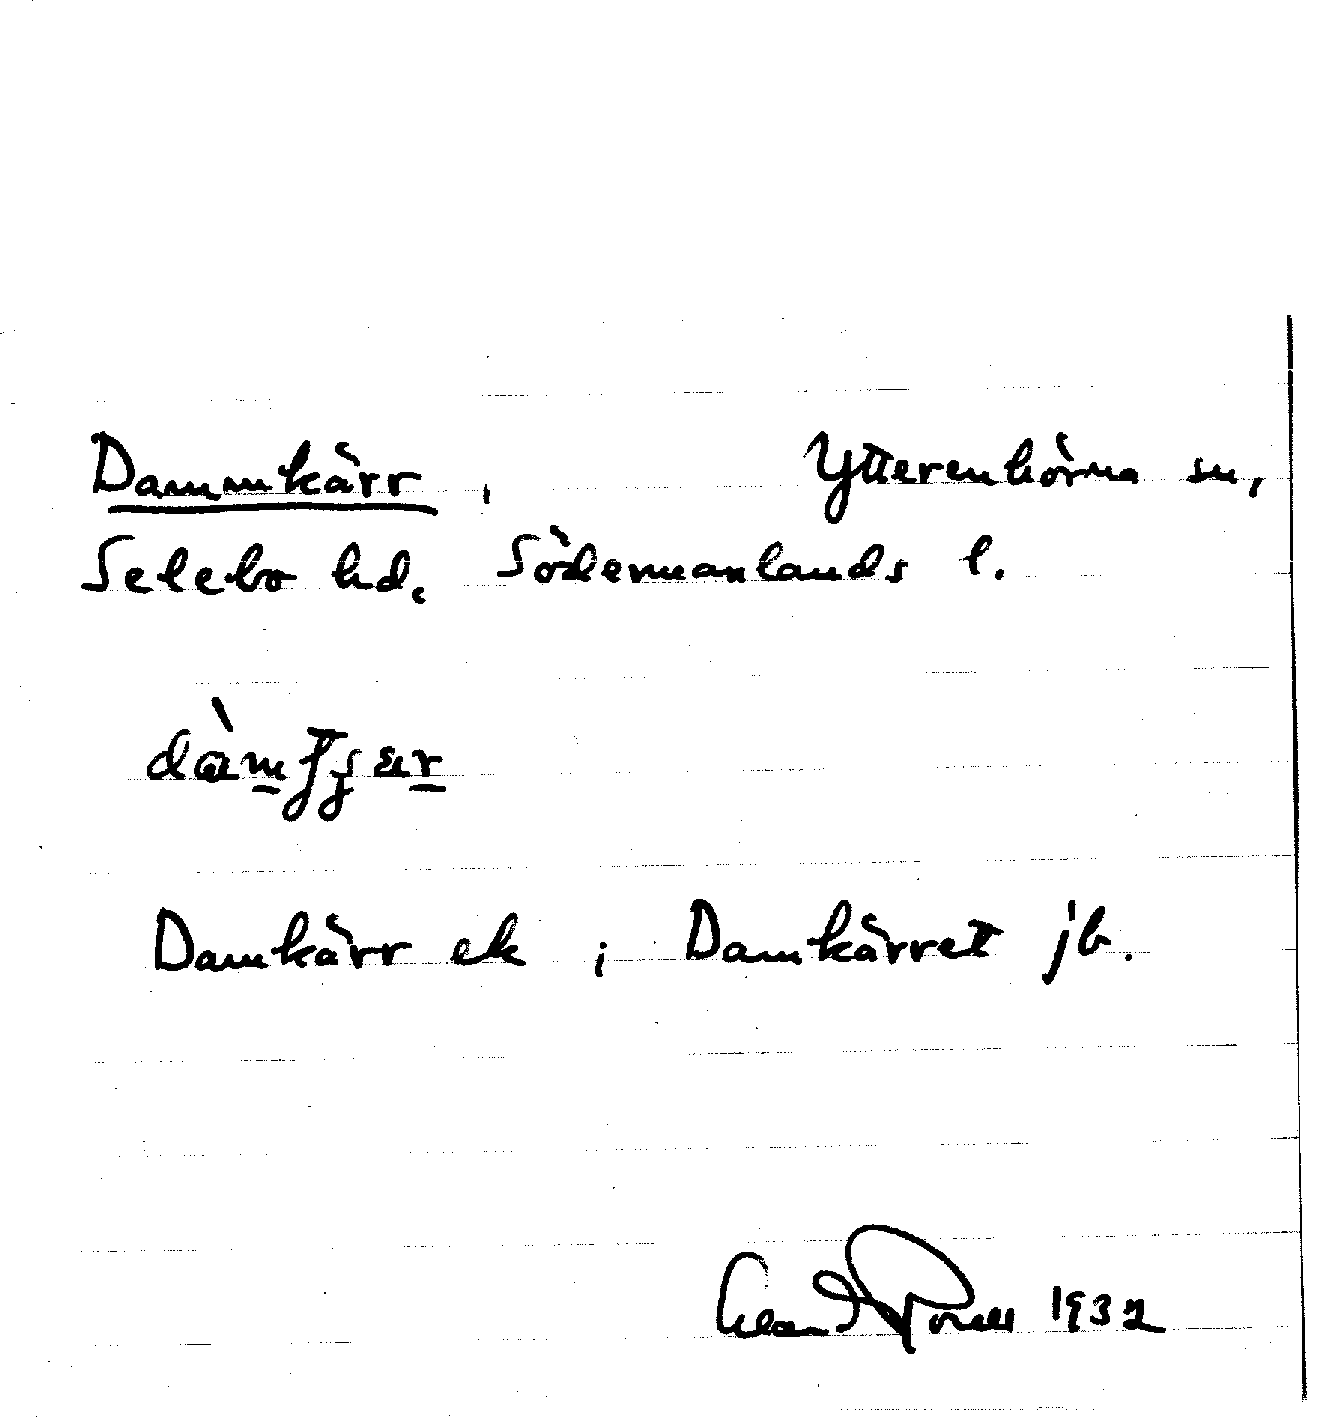 Dammkärr, Ytterenhörna sn,
Selebo hd. Södermanlands l.
Damkärr ek; Damkärret jb.
1932